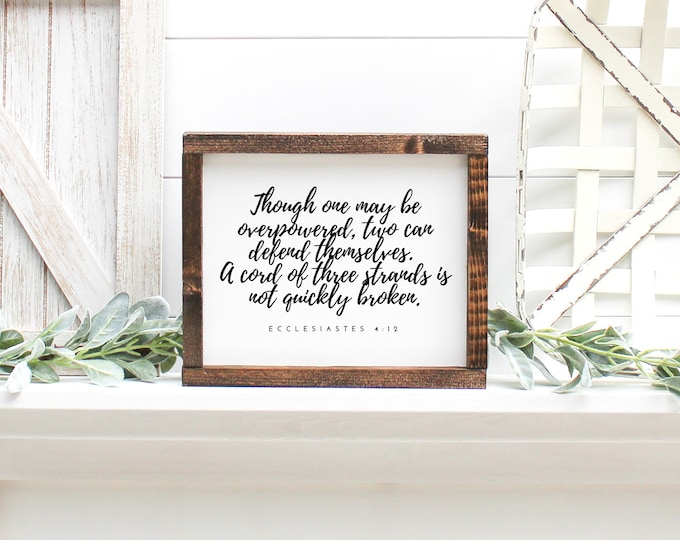 Though one may be
overpowered, two can
defend themselves.
A cord of three strands is
not quickly broken.
ECCLESIASTES 4:12